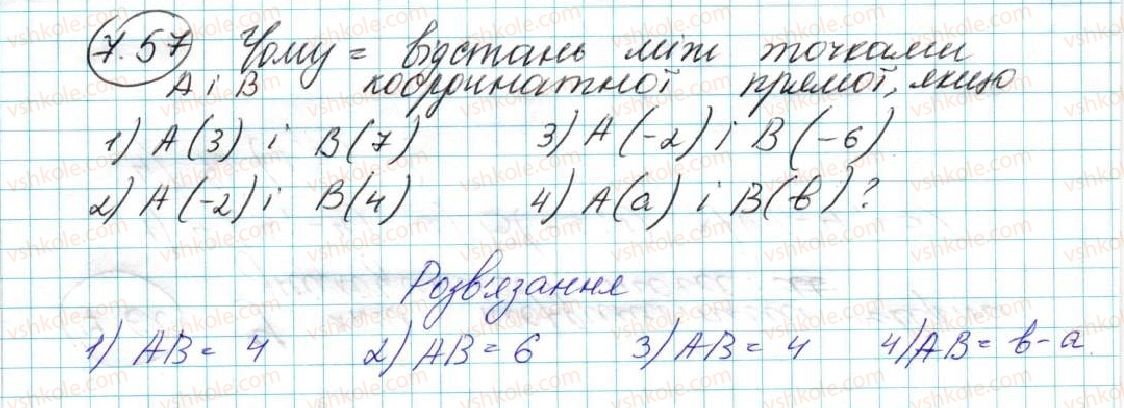 7.57 Чому = відстань між точками
А і В координатної прямої, якщо
1) А(3) і В(7) 3) А(-2) і В(-6)
2) А(-2) і В(4) 4) А(а) і В(в)?
Розв'язання
1) АВ = 4 2) АВ = 6 3) АВ = 4 4) АВ = в - а